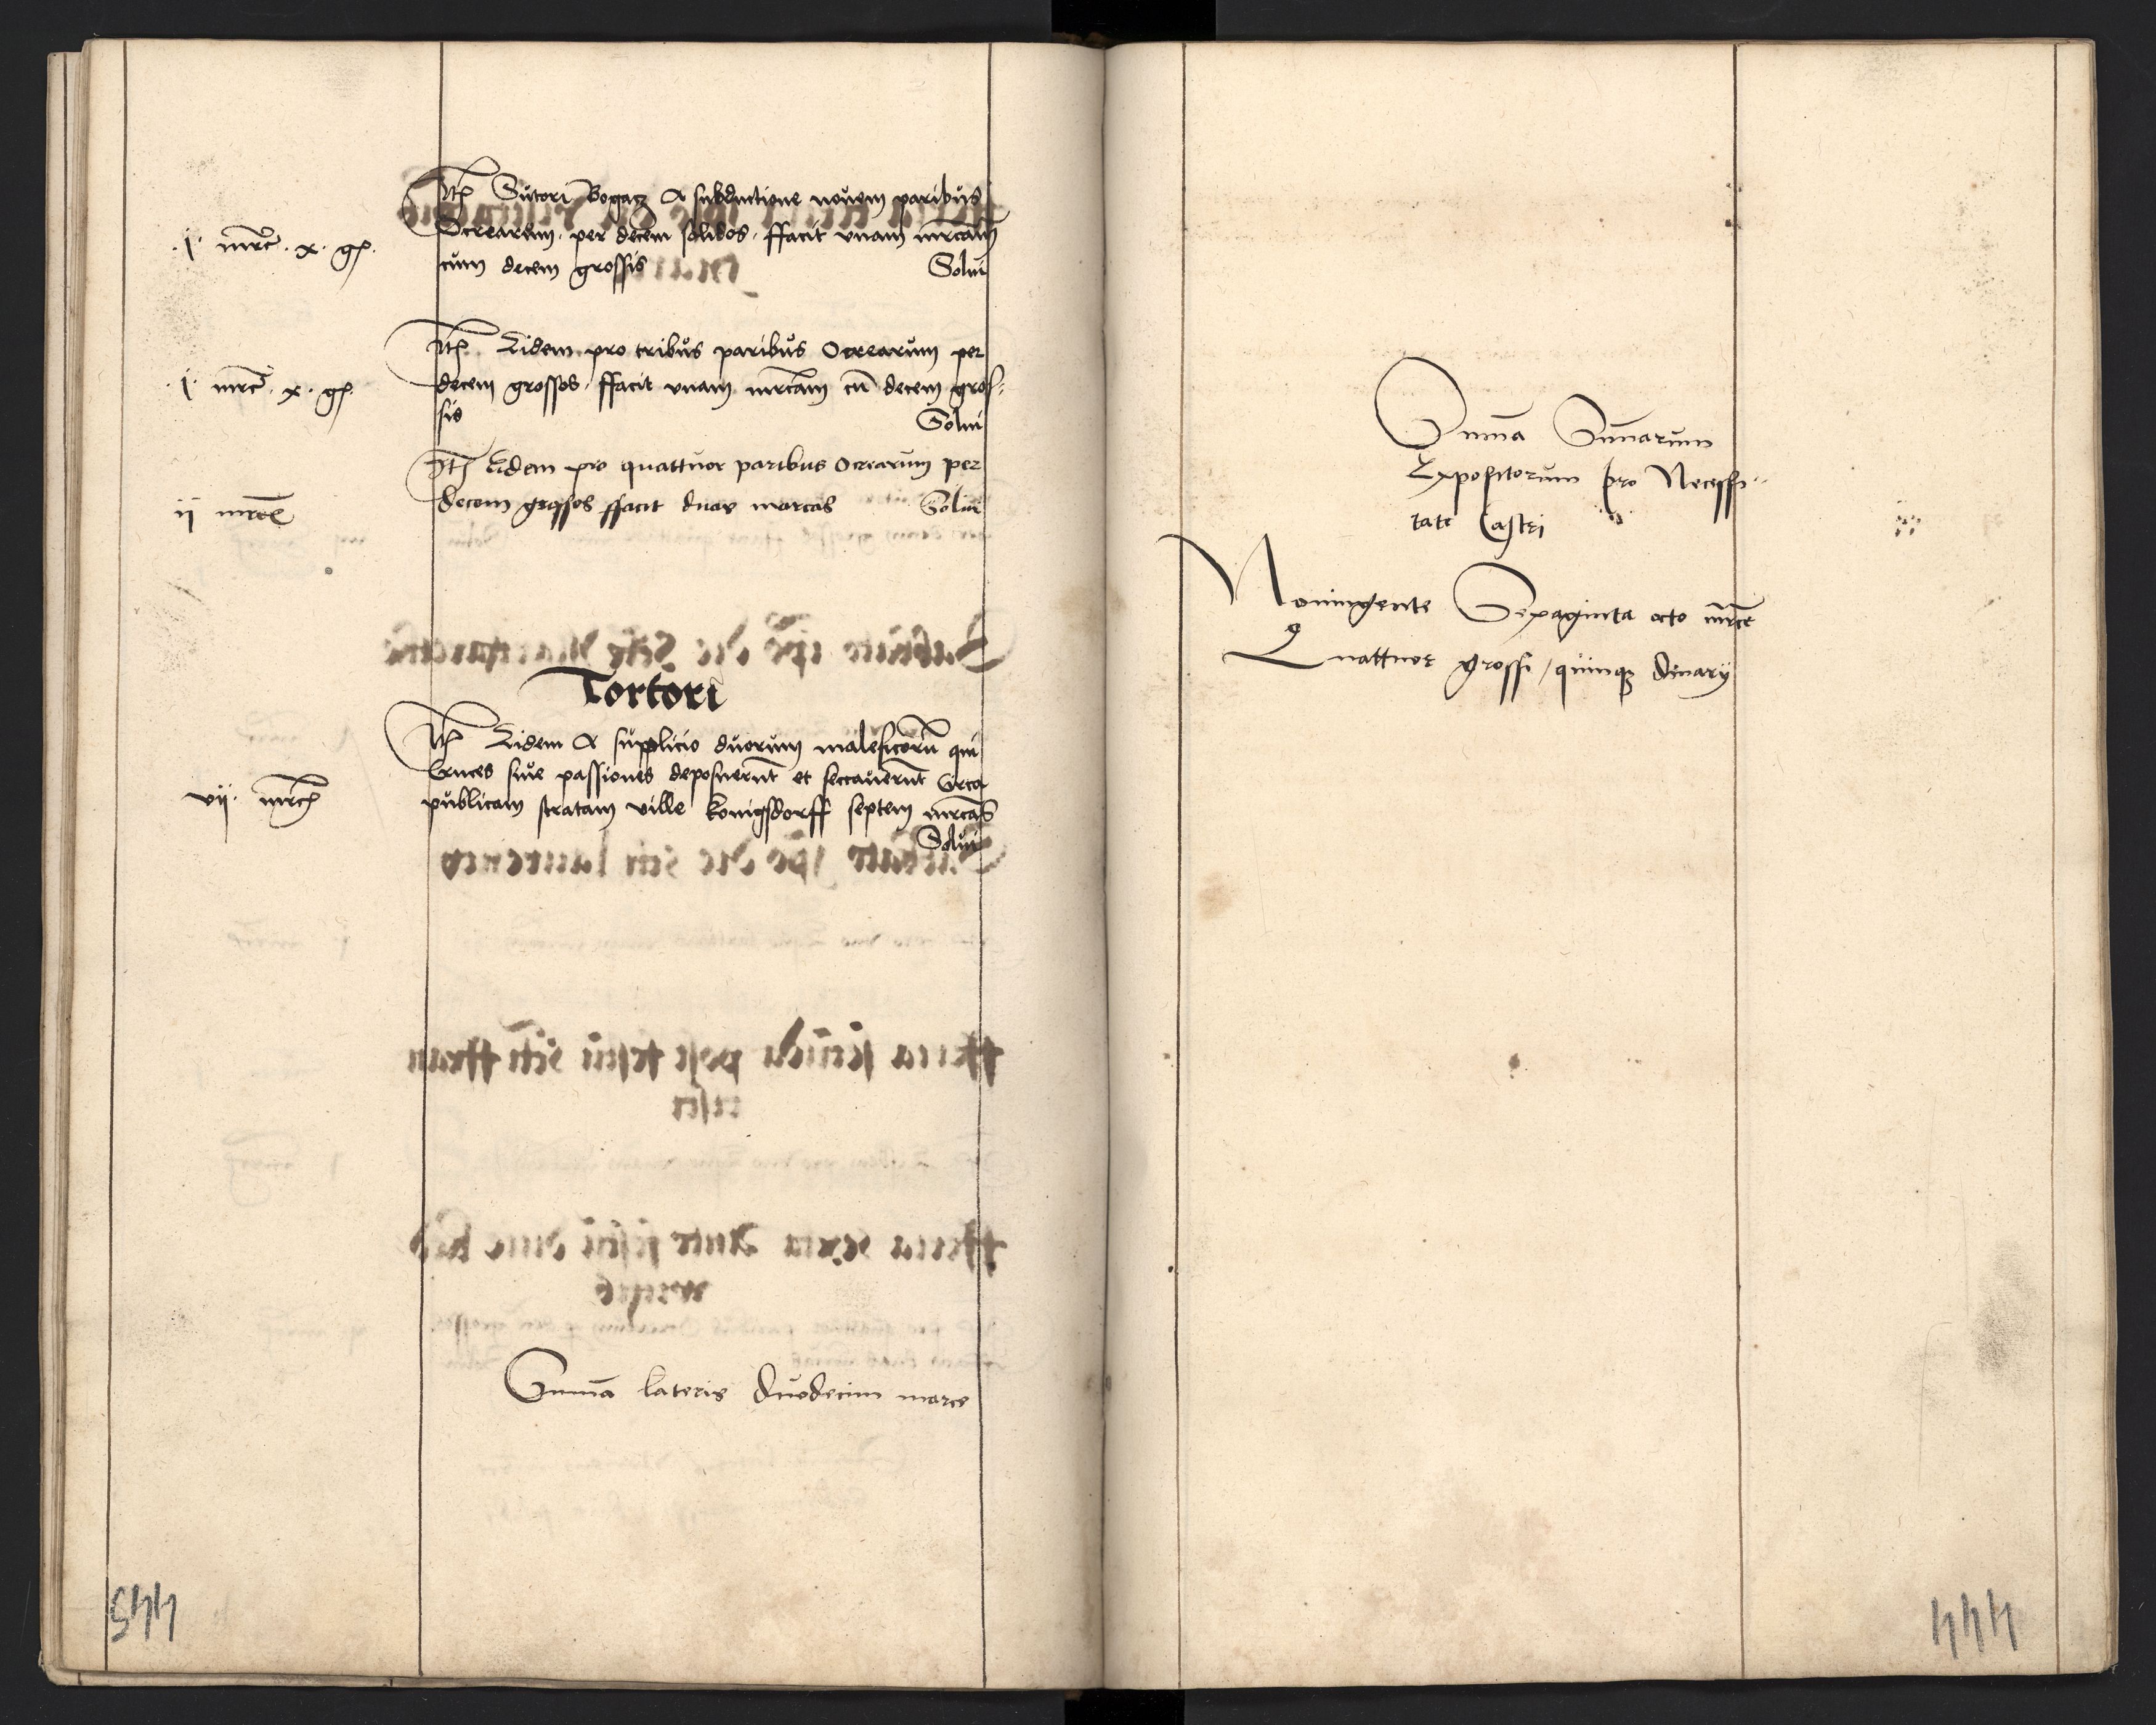 Itē Sutori Bogacz A subductione novem paribus
Ocrearum per decem solidos ffacit vnam mrcam
.j. mrc̄ .x. gr.
cum decem grossis Solui
Itē Eidem pro tribus paribus Ocrearum per
.j. mrc̄ .x. gr.
decem grossos ffacit vnam mrcam cū decem gros-
sis Solui
Itē Eidem pro quattuor paribus Ocrearum per
ij mrce
decem grossos ffacit duas marcas Solui
Tortori
Itē Eidem A supplicio duorum maleficorū qui
Cruces siue passiones deposuerūt et seccauerūt Circa
vij. mrc̄
publicam stratam ville konigsdorff septem mrcas
Solui
Sum̄a lateris duodecim marce
445
Sum̄a Sum̄arum
Expositorum pro Necessi-
tate Castri
Noningente Sexaginta octo mrce
Quattuor grossi / quinqꝫ denarij
444